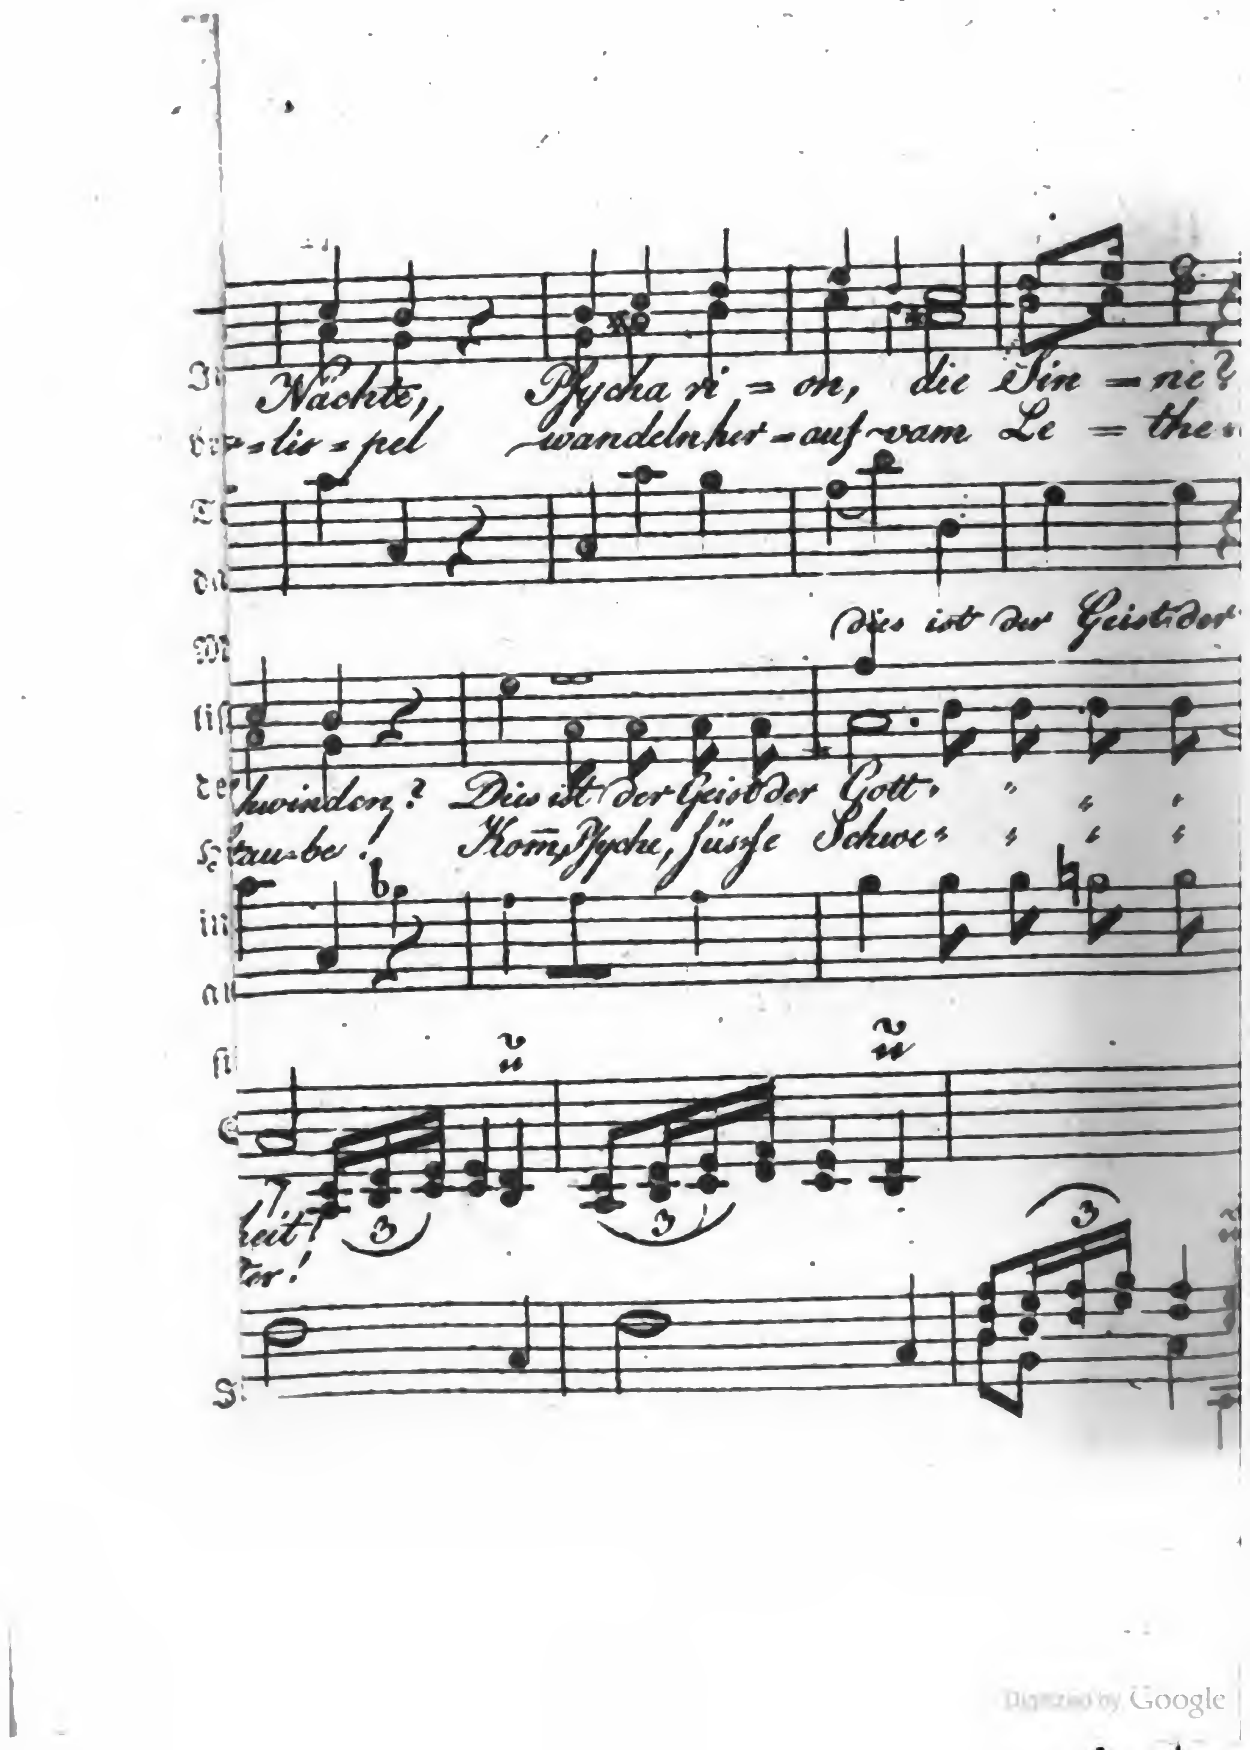 Nächte, Psycha ri = on, die Sin = ne?
= lis = pel wandeln her = auf vom Le = the =
dies ist der Geist der
hwinden? Dies ist der Geist der Gott = " " "
tau = be! Kom̄, Psyche, süsse Schwe = " " "
3 3
heit!
ter!
3
Digitized by Google